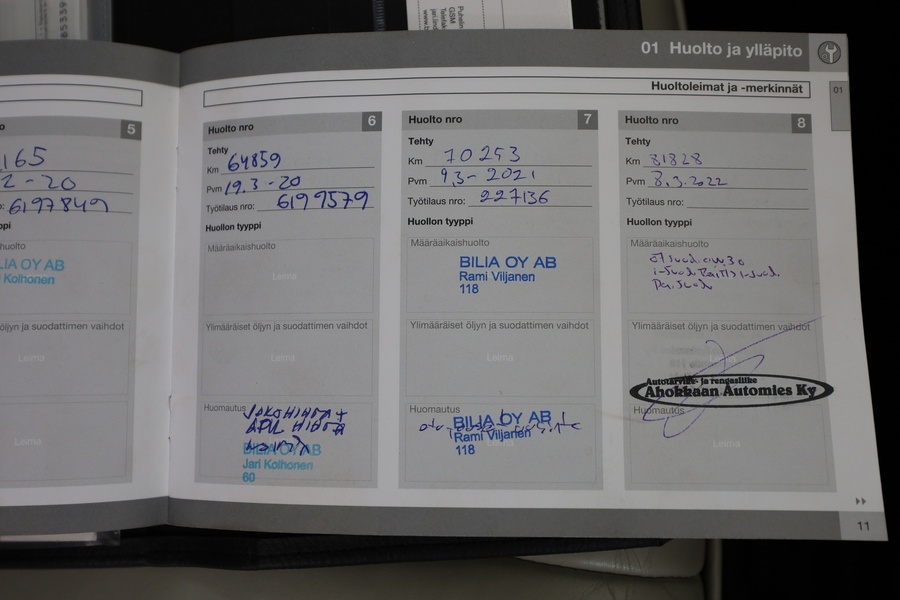 Puhelin
GSM
Telefak
01 Huolto ja ylläpito
Huoltoleimat ja -merkinnät
01
5
165
2-20
6197849
BILIA OY AB
Kolhonen
öljyn ja suodattimen vaihdot
Leima
Leima
Huolto nro 6
Tehty
Km 64859
Pvm 19.3-20
Työtilaus nro: 6199579
Huollon tyyppi
Määräaikaishuolto
Leima
Ylimääräiset öljyn ja suodattimen vaihdot
Leima
Huomautus
BILIA OY AB
Jari Kolhonen
60
Huolto nro 7
Tehty
Km 70253
Pvm 9.3-2021
Työtilaus nro: 227136
Huollon tyyppi
Määräaikaishuolto
BILIA OY AB
Rami Viljanen
118
Ylimääräiset öljyn ja suodattimen vaihdot
Leima
Huomautus
BILIA OY AB
Rami Viljanen
118
Huolto nro 8
Tehty
Km 81828
Pvm 8.3.2022
Työtilaus nro:
Huollon tyyppi
Määräaikaishuolto
Ylimääräiset öljyn ja suodattimen vaihdot
Autotarvike- ja rengasliike
Ahokkaan Automies Ky
Huomautus
11